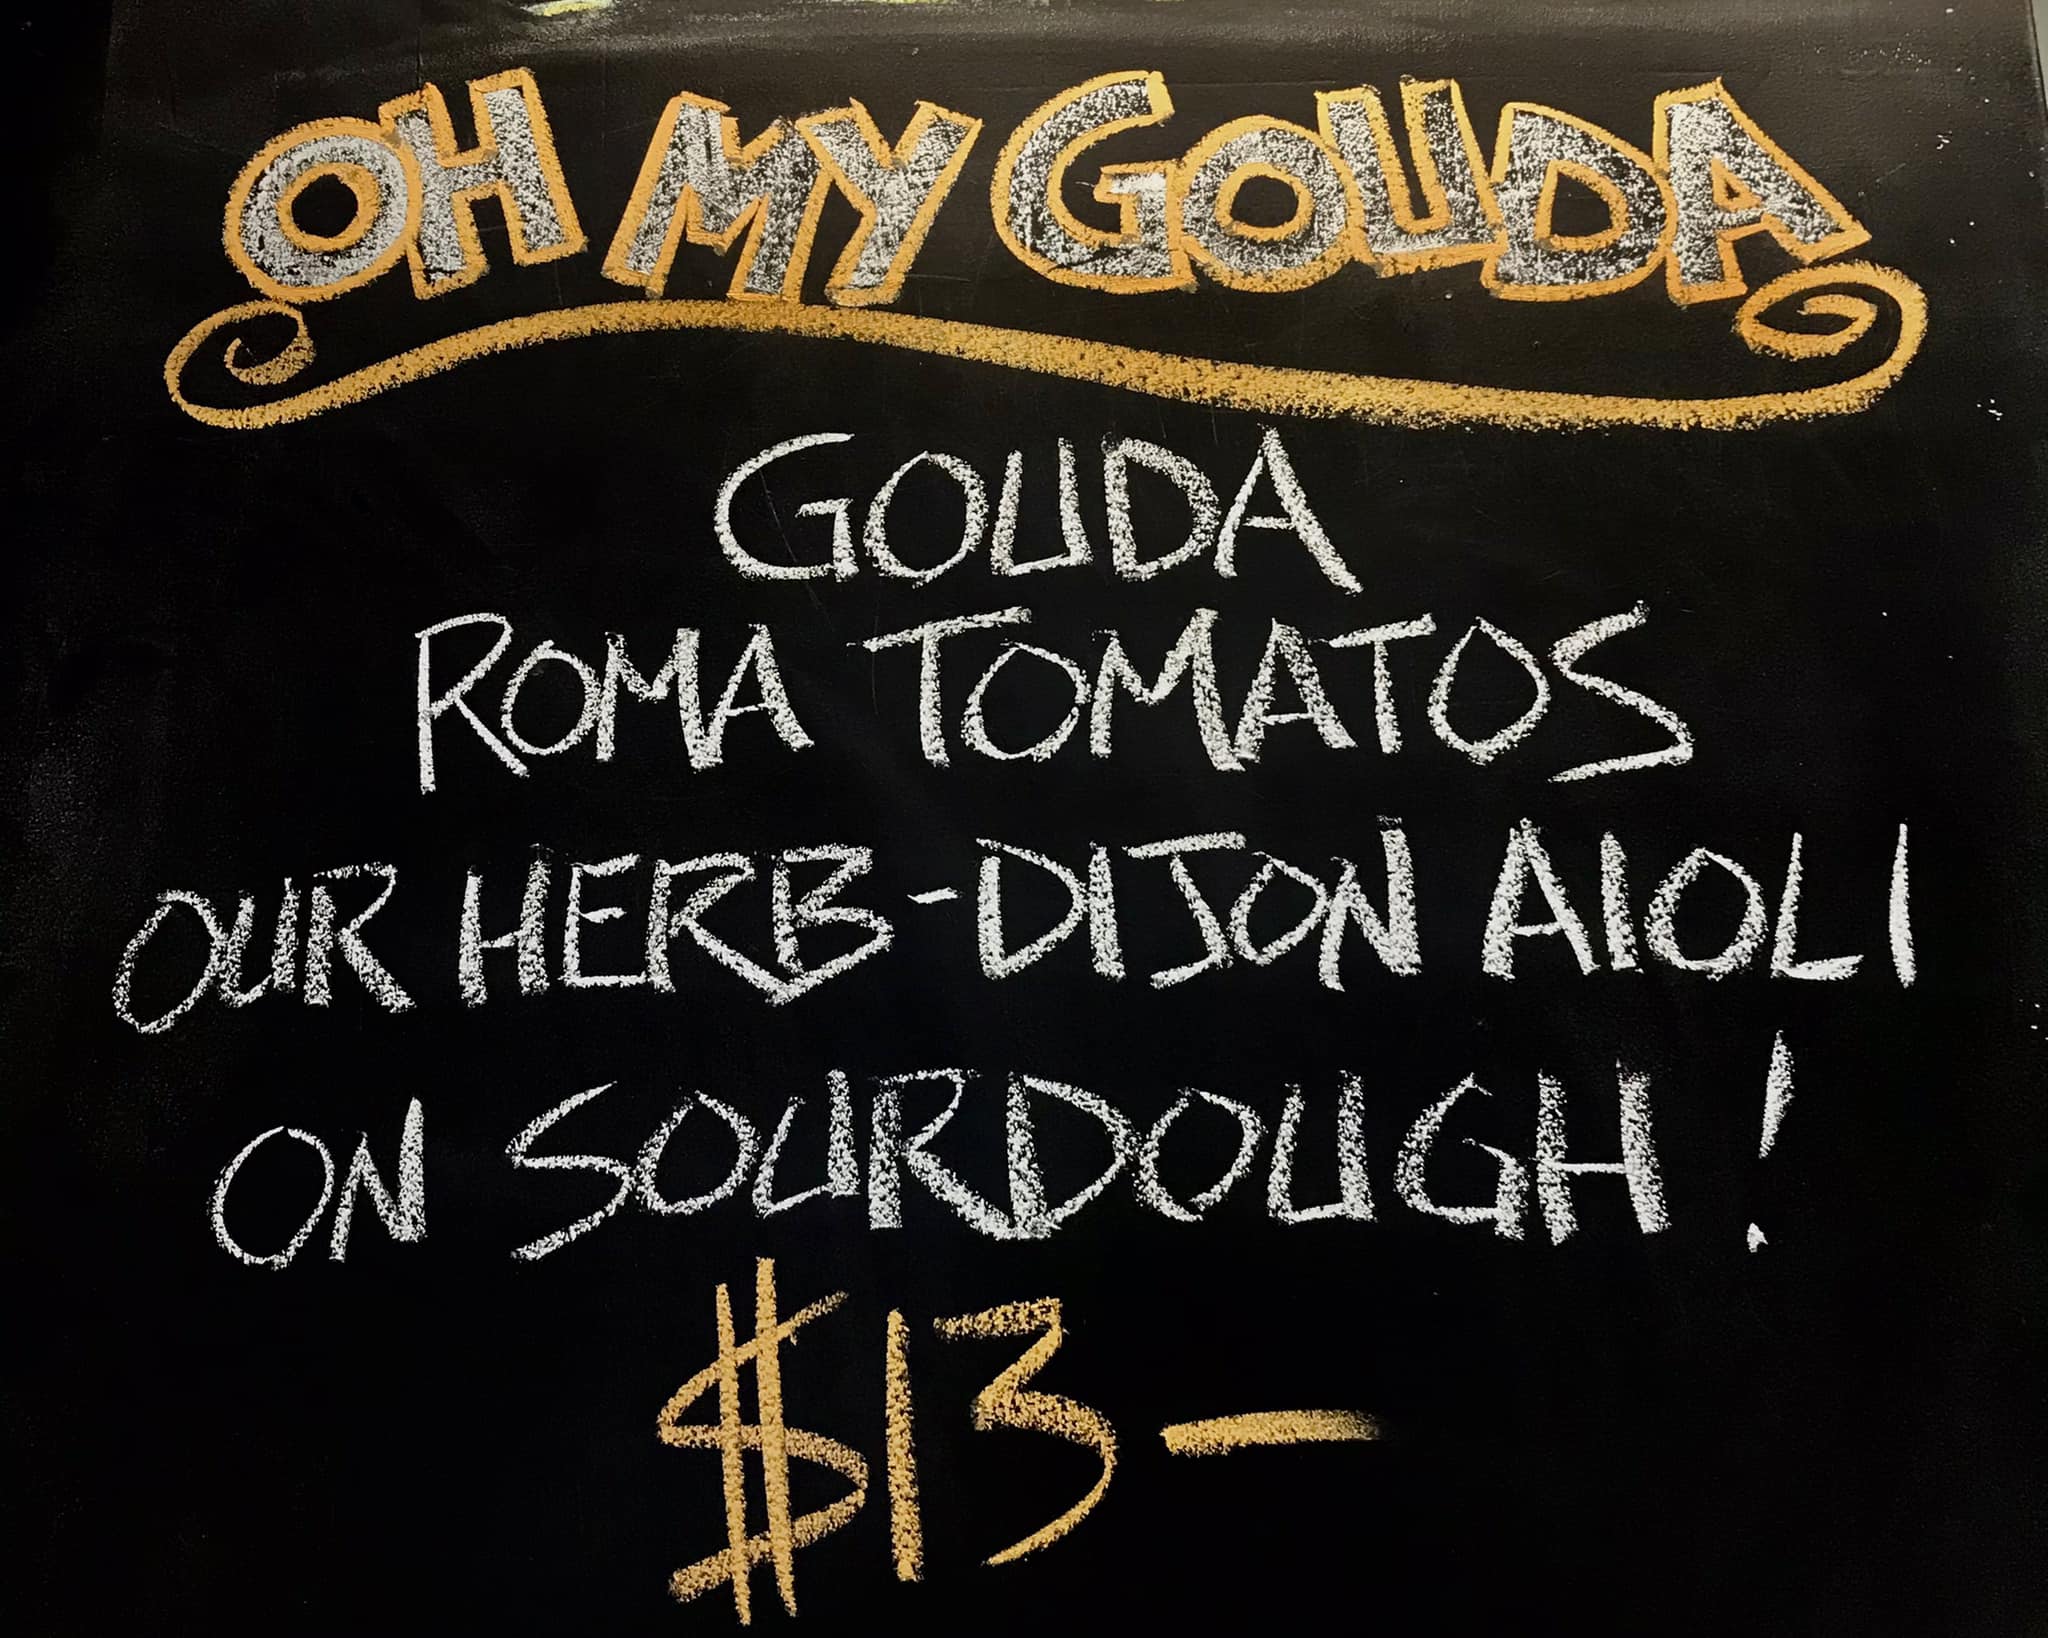 OH MY GOUDA
GOUDA
ROMA TOMATOS
OUR HERB-DIJON AIOLI
ON SOURDOUGH!
$13—